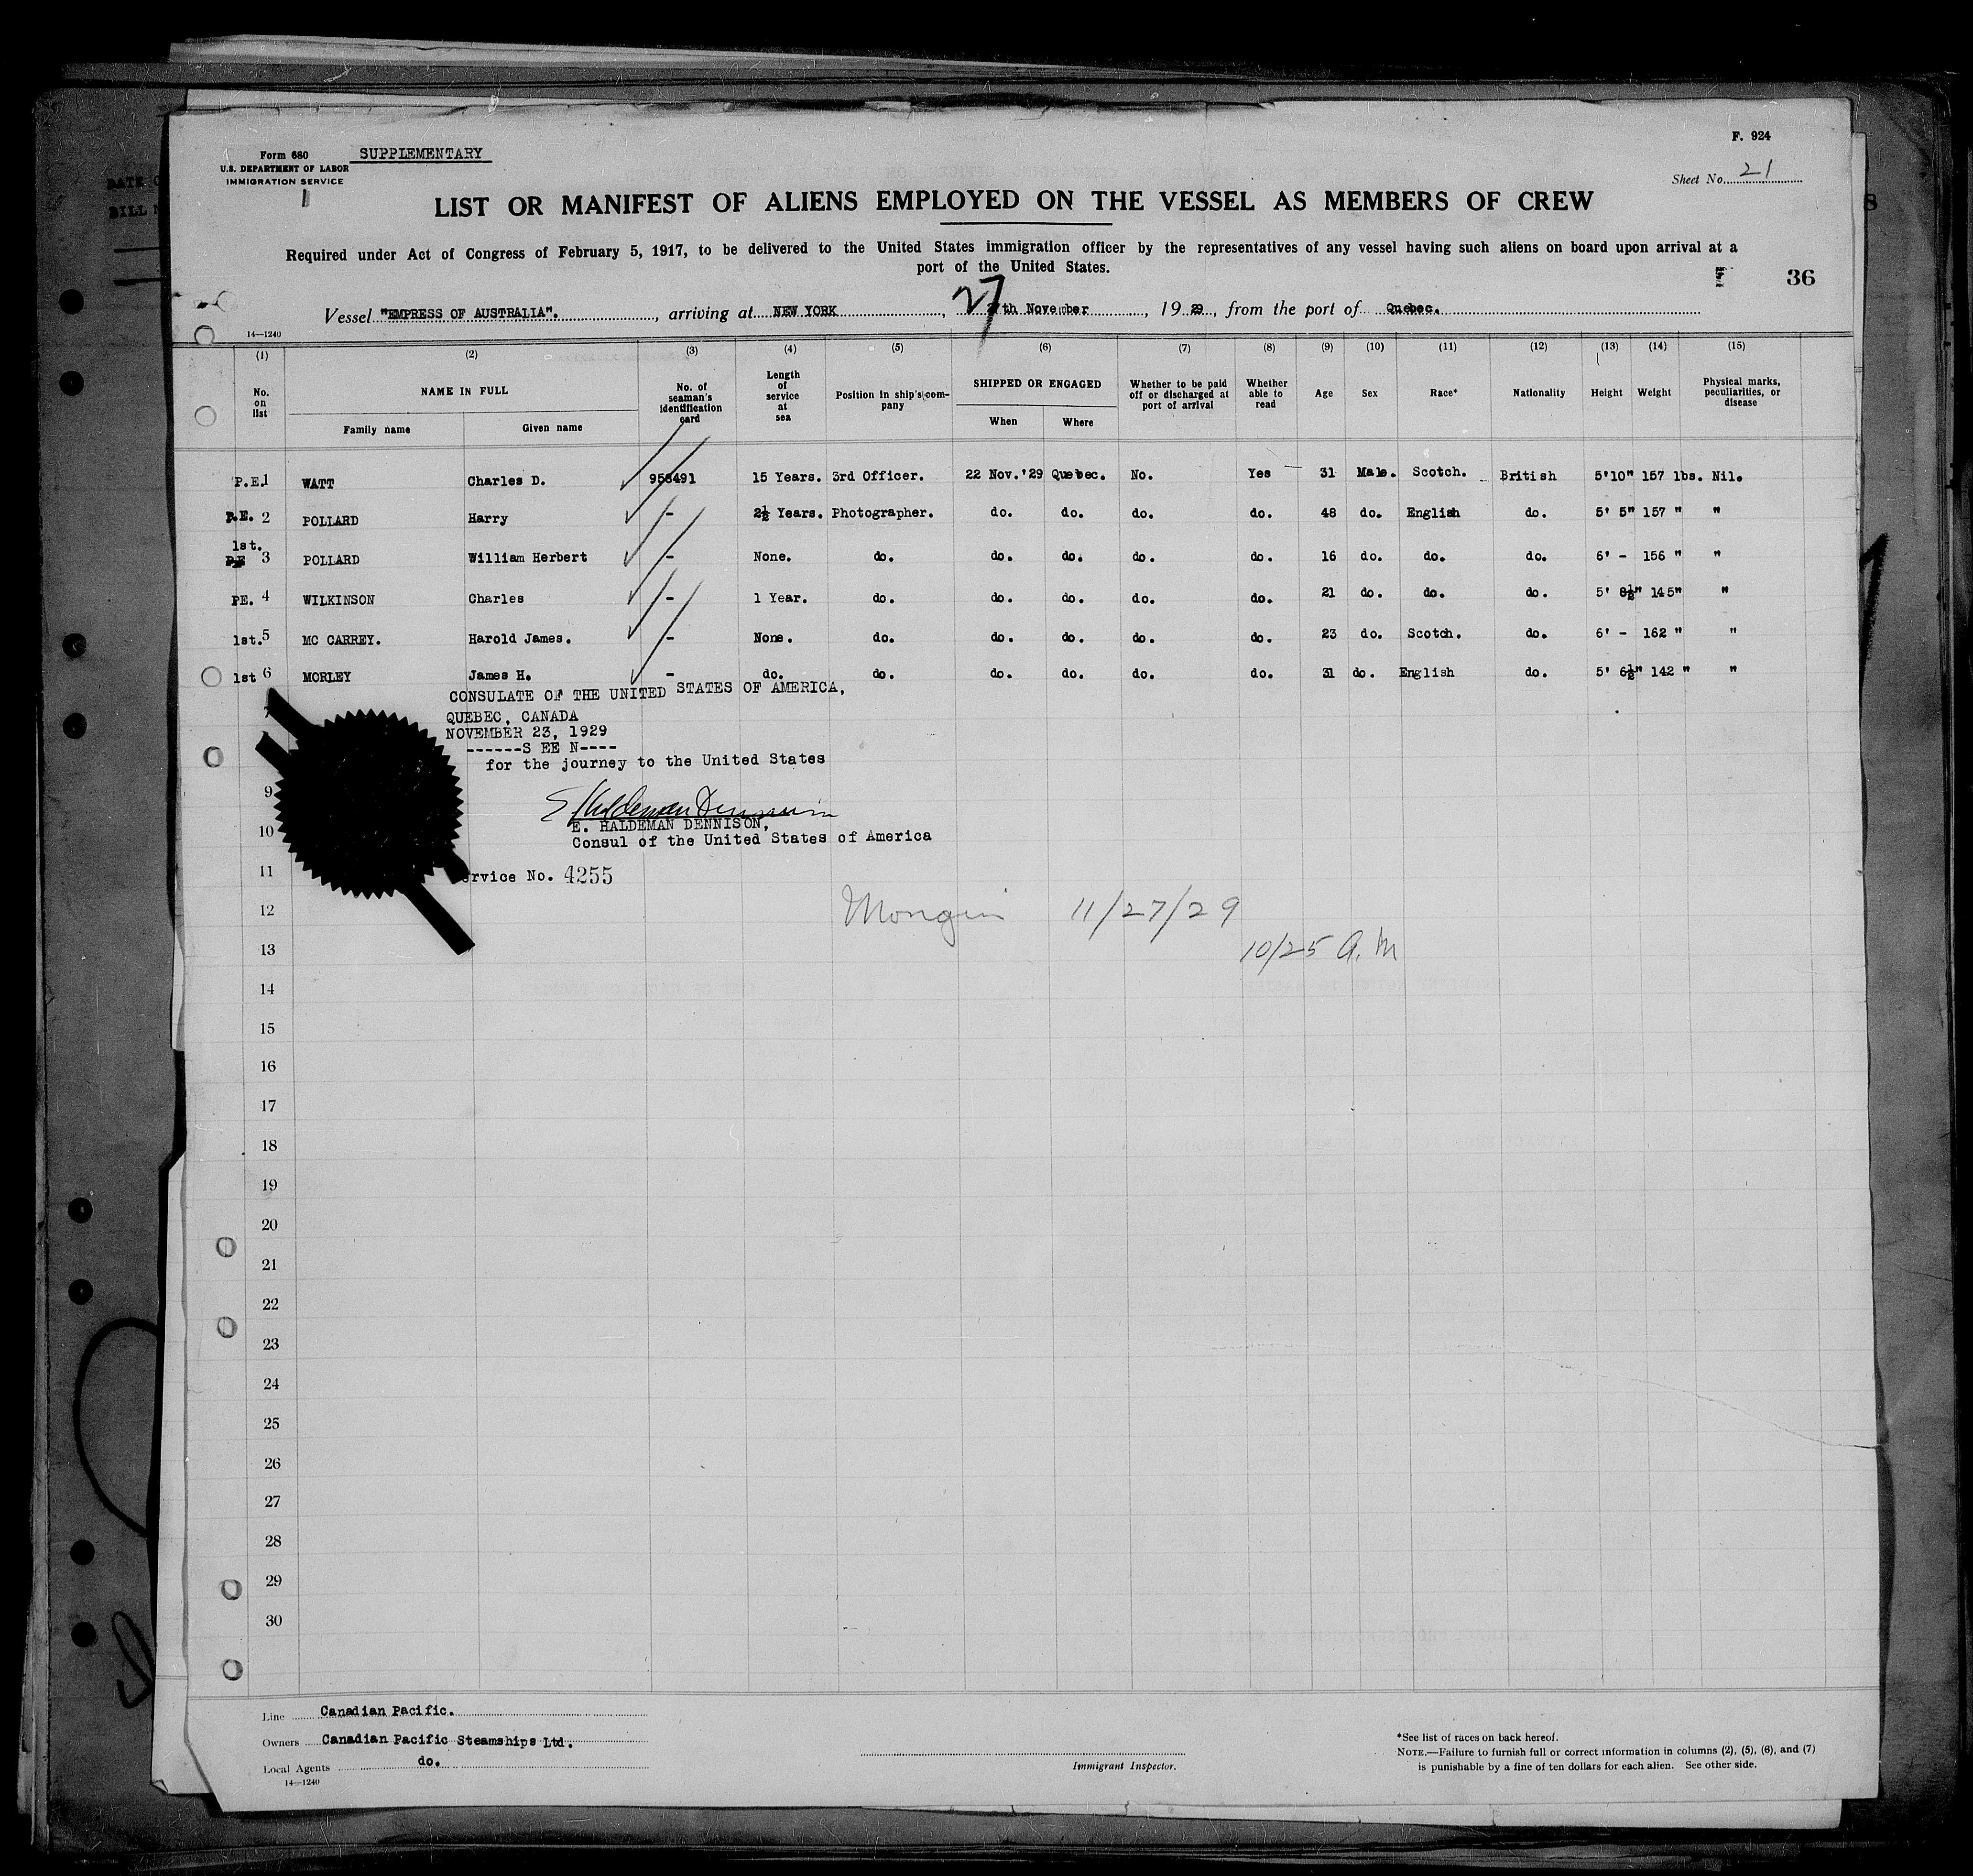 F. 924
Form 680
SUPPLEMENTARY
U.S. DEPARTMENT OF LABOR
IMMIGRATION SERVICE
Sheet No. 21
LIST OR MANIFEST OF ALIENS EMPLOYED ON THE VESSEL AS MEMBERS OF CREW
Required under Act of Congress of February 5, 1917, to be delivered to the United States immigration officer by the representatives of any vessel having such aliens on board upon arrival at a
port of the United States.
36
Vessel "EMPRESS OF AUSTRALIA"., arriving at NEW YORK, 27th November, 1929, from the port of Quebec.
14—1240
(1) (2) (3) (4) (5) (6) (7) (8) (9) (10) (11) (12) (13) (14) (15)
No. on list NAME IN FULL Family name Given name No. of seaman's identification card Length of service at sea Position in ship's company SHIPPED OR ENGAGED When Where Whether to be paid off or discharged at port of arrival Whether able to read Age Sex Race* Nationality Height Weight Physical marks, peculiarities, or disease
P.E.1 WATT Charles D. 958491 15 Years. 3rd Officer. 22 Nov.'29 Quebec. No. Yes 31 Male. Scotch. British 5'10" 157 lbs. Nil.
P.E. 2 POLLARD Harry - 2½ Years. Photographer. do. do. do. do. 48 do. English do. 5' 5" 157 " "
1st.
PE 3 POLLARD William Herbert - None. do. do. do. do. do. 16 do. do. do. 6' - 156 " "
PE. 4 WILKINSON Charles - 1 Year. do. do. do. do. do. 21 do. do. do. 5' 8½" 145" "
1st.5 MC CARREY. Harold James. - None. do. do. do. do. do. 23 do. Scotch. do. 6' - 162 " "
1st 6 MORLEY James H. - do. do. do. do. do. do. 31 do. English do. 5' 6½" 142 " "
CONSULATE OF THE UNITED STATES OF AMERICA,
7
QUEBEC, CANADA
NOVEMBER 23, 1929
------S EE N----
for the journey to the United States
9
E. HALDEMAN DENNISON,
10
Consul of the United States of America
11
ervice No. 4255
12
11/27/29
13
10/25 A.M
14
15
16
17
18
19
20
21
22
23
24
25
26
27
28
29
30
Line Canadian Pacific.
Owners Canadian Pacific Steamships Ltd.
Local Agents do.
14—1240
Immigrant Inspector.
*See list of races on back hereof.
NOTE.—Failure to furnish full or correct information in columns (2), (5), (6), and (7)
is punishable by a fine of ten dollars for each alien. See other side.